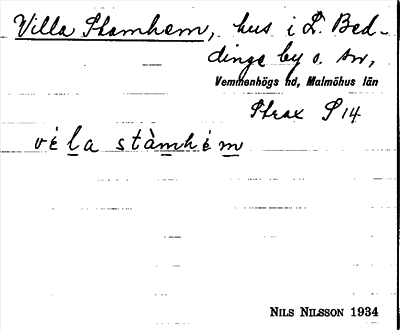 Villa Stamhem, hus i L. Bed-
dinge by o. sn,
Vemmenhögs hd, Malmöhus län
Strax S 14
vé la stàmhém
NILS NILSSON 1934